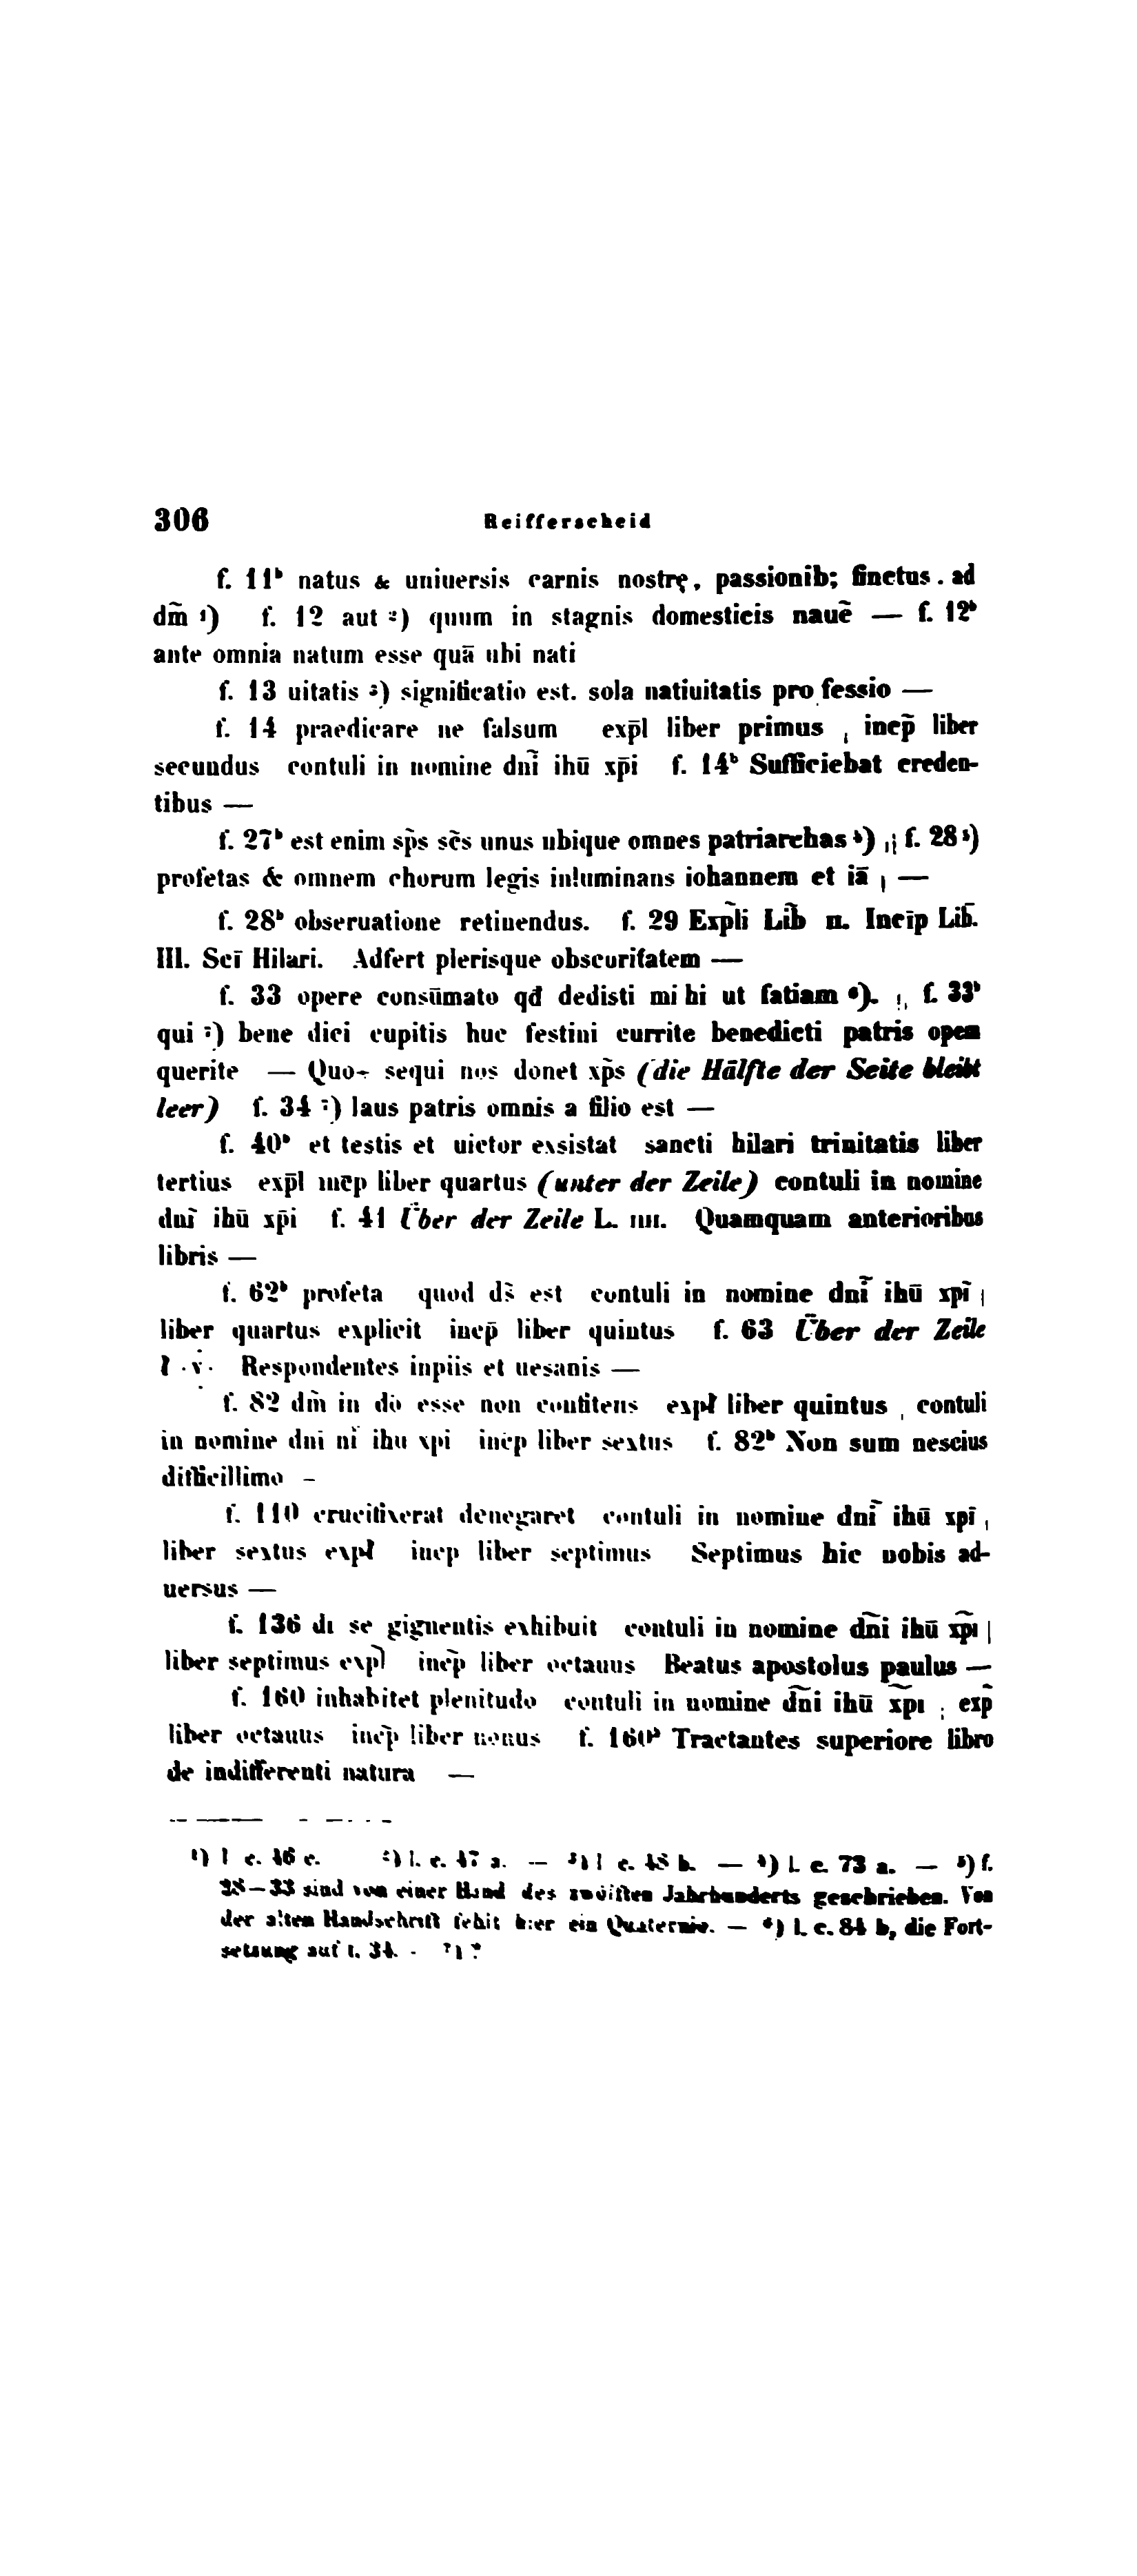 306 Reifferscheid
f. 11ᵇ natus & uniuersis carnis nostrę, passionib; finctus . ad
dm̃ ¹) f. 12 aut ²) quum in stagnis domesticis nauẽ — f. 12ᵇ
ante omnia natum esse quā ubi nati
f. 13 uitatis ³) significatio est. sola natiuitatis pro fessio —
f. 14 praedicare ne falsum exp̄l liber primus | incp̃ liber
secundus contuli in nomine dnĩ ihū xp̄i f. 14ᵇ Sufficiebat creden-
tibus —
f. 27ᵇ est enim sp̃s sc̃s unus ubique omnes patriarchas ⁴) || f. 28 ⁵)
profetas & omnem chorum legis inluminans iohannem et iā | —
f. 28ᵇ obseruatione retinendus. f. 29 Exp̃li Lib̃ II. Incip̄ Lib̄.
III. Scī Hilari. Adfert plerisque obscuritatem —
f. 33 opere consūmato qđ dedisti mi hi ut fatiam ⁶). || f. 33ᵇ
qui ⁷) bene dici cupitis huc festini currite benedicti patris opem
querite — Quo÷ sequi nos donet xp̃s (die Hälfte der Seite bleibt
leer) f. 34 ⁷) laus patris omnis a filio est —
f. 40ᵇ et testis et uictor exsistat sancti hilari trinitatis liber
tertius exp̄l inc̄p liber quartus (unter der Zeile) contuli in nomine
dnĩ ihū xp̄i f. 41 Über der Zeile L. IIII. Quamquam anterioribus
libris —
f. 62ᵇ profeta quod ds̃ est contuli in nomine dnĩ ihū xpĩ |
liber quartus explicit incp̄ liber quintus f. 63 Über der Zeile
l · v · Respondentes inpiis et uesanis —
f. 82 dm̃ in dõ esse non confitens expł liber quintus | contuli
in nomine dni nĩ ihu xpi incp liber sextus f. 82ᵇ Non sum nescius
difficillimo —
f. 110 crucifixerat denegaret contuli in nomine dnĩ ihū xpī |
liber sextus expł incp liber septimus Septimus hic nobis ad-
uersus —
f. 136 di se gignentis exhibuit contuli in nomine dñi ihū xp̃i |
liber septimus expl̃ incp̃ liber octauus Beatus apostolus paulus —
f. 160 inhabitet plenitudo contuli in nomine dñi ihū xp̃i | exp̃
liber octauus incp̃ liber nonus f. 160ᵇ Tractantes superiore libro
de indifferenti natura —
¹) l. c. 46 c. ²) l. c. 47 a. — ³) l. c. 48 b. — ⁴) l. c. 73 a. — ⁵) f.
28—33 sind von einer Hand des zwölften Jahrhunderts geschrieben. Von
der alten Handschrift fehlt hier ein Quaternio. — ⁶) l. c. 84 b, die Fort-
setzung auf f. 34. - ⁷) ?